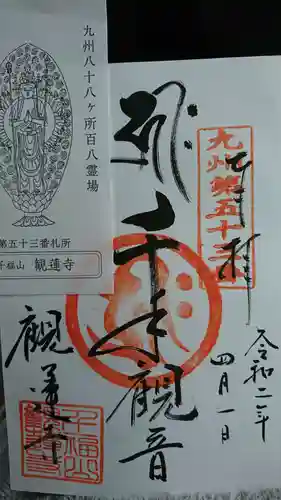 九州八十八ヶ所百八霊場
第五十三番札所
千福山 観蓮寺
九州第五十三
奉拝
千手観音
令和二年
四月一日
観蓮寺